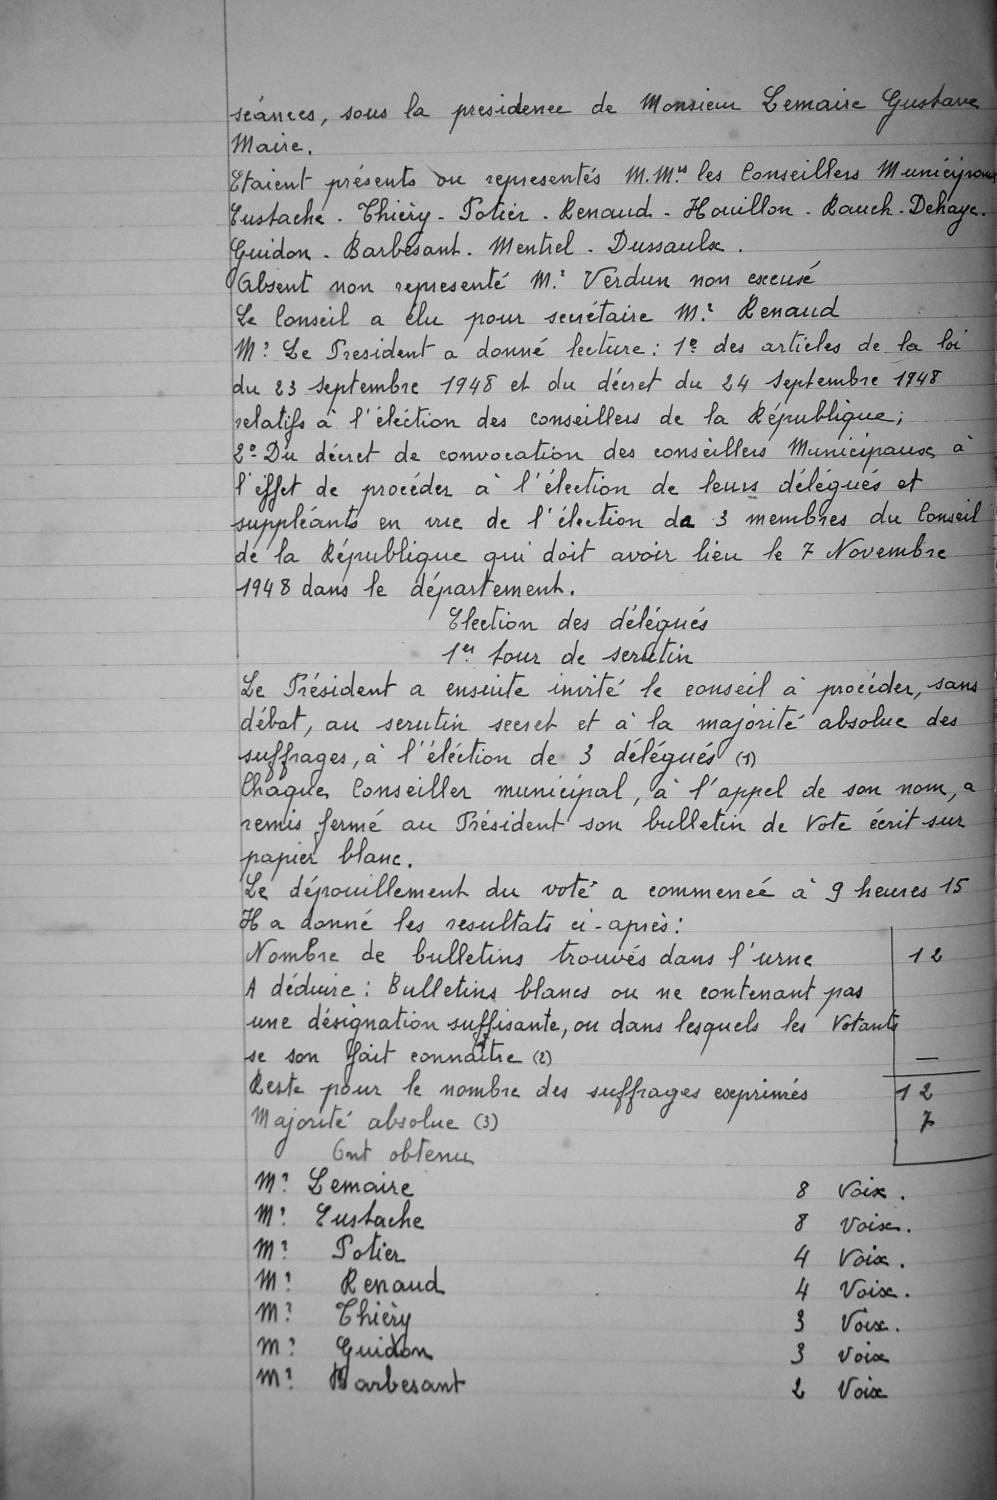 séances, sous la présidence de Monsieur Lemaire Gustave
Maire.
Etaient présents ou representés M.Mrs les Conseillers Municipaux
Eustache - Thiéry - Potier - Renaud - Houillon - Rauch - Dehaye -
Guidon - Barbesant - Mentrel - Dussaulx.
Absent non representé Mr Verdun non excusé
Le Conseil a élu pour secrétaire Mr Renaud
Mr Le President a donné lecture : 1º des articles de la loi
du 23 septembre 1948 et du décret du 24 septembre 1948
relatifs à l'élection des conseillers de la République;
2º Du décret de convocation des conseillers Municipaux à
l'effet de procéder à l'élection de leurs délégués et
suppléants en vue de l'élection de 3 membres du Conseil
de la République qui doit avoir lieu le 7 Novembre
1948 dans le département.
Election des délégués
1er tour de scrutin
Le Président a ensuite invité le conseil à procéder, sans
débat, au scrutin secret et à la majorité absolue des
suffrages, à l'éléction de 3 délégués (1)
Chaque Conseiller municipal, à l'appel de son nom, a
remis fermé au Président son bulletin de vote écrit sur
papier blanc.
Le dépouillement du vote a commencé à 9 heures 15
Il a donné les resultats ci-après :
Nombre de bulletins trouvés dans l'urne 12
A déduire : Bulletins blancs ou ne contenant pas
une désignation suffisante, ou dans lesquels les Votants
se son fait connaître (2) —
Reste pour le nombre des suffrages exprimés 12
Majorité absolue (3) 7
Ont obtenu
Mr Lemaire 8 Voix.
Mr Eustache 8 Voix.
Mr Potier 4 Voix.
Mr Renaud 4 Voix.
Mr Thiéry 3 Voix.
Mr Guidon 3 Voix
Mr Barbesant 2 Voix